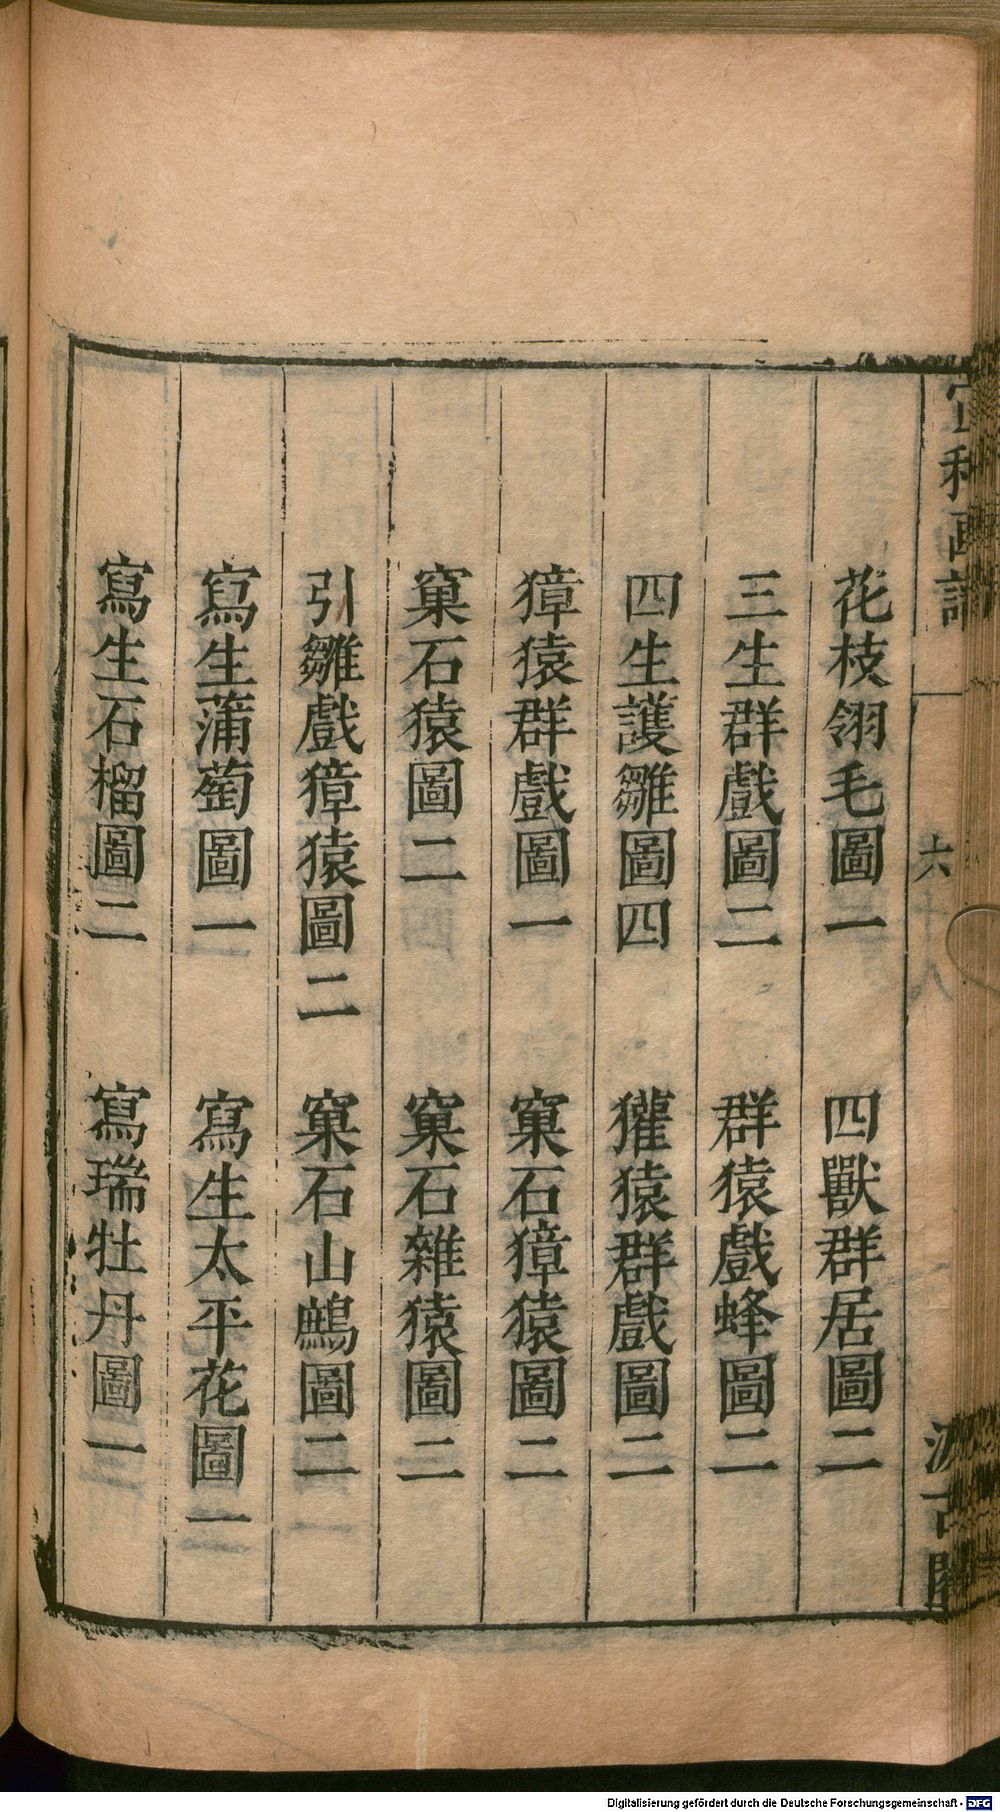 宣和画譜 六 十八 汲古閣
花枝翎毛圖一 四獸群居圖二
三生群戲圖二 群猿戲蜂圖二
四生護雛圖四 獾猿群戲圖二
獐猿群戲圖一 窠石獐猿圖二
窠石猿圖二 窠石雜猿圖二
引雛戲獐猿圖二 窠石山鷓圖二
寫生蒲萄圖一 寫生太平花圖一
寫生石榴圖二 寫瑞牡丹圖一
Digitalisierung gefördert durch die Deutsche Forschungsgemeinschaft - DFG